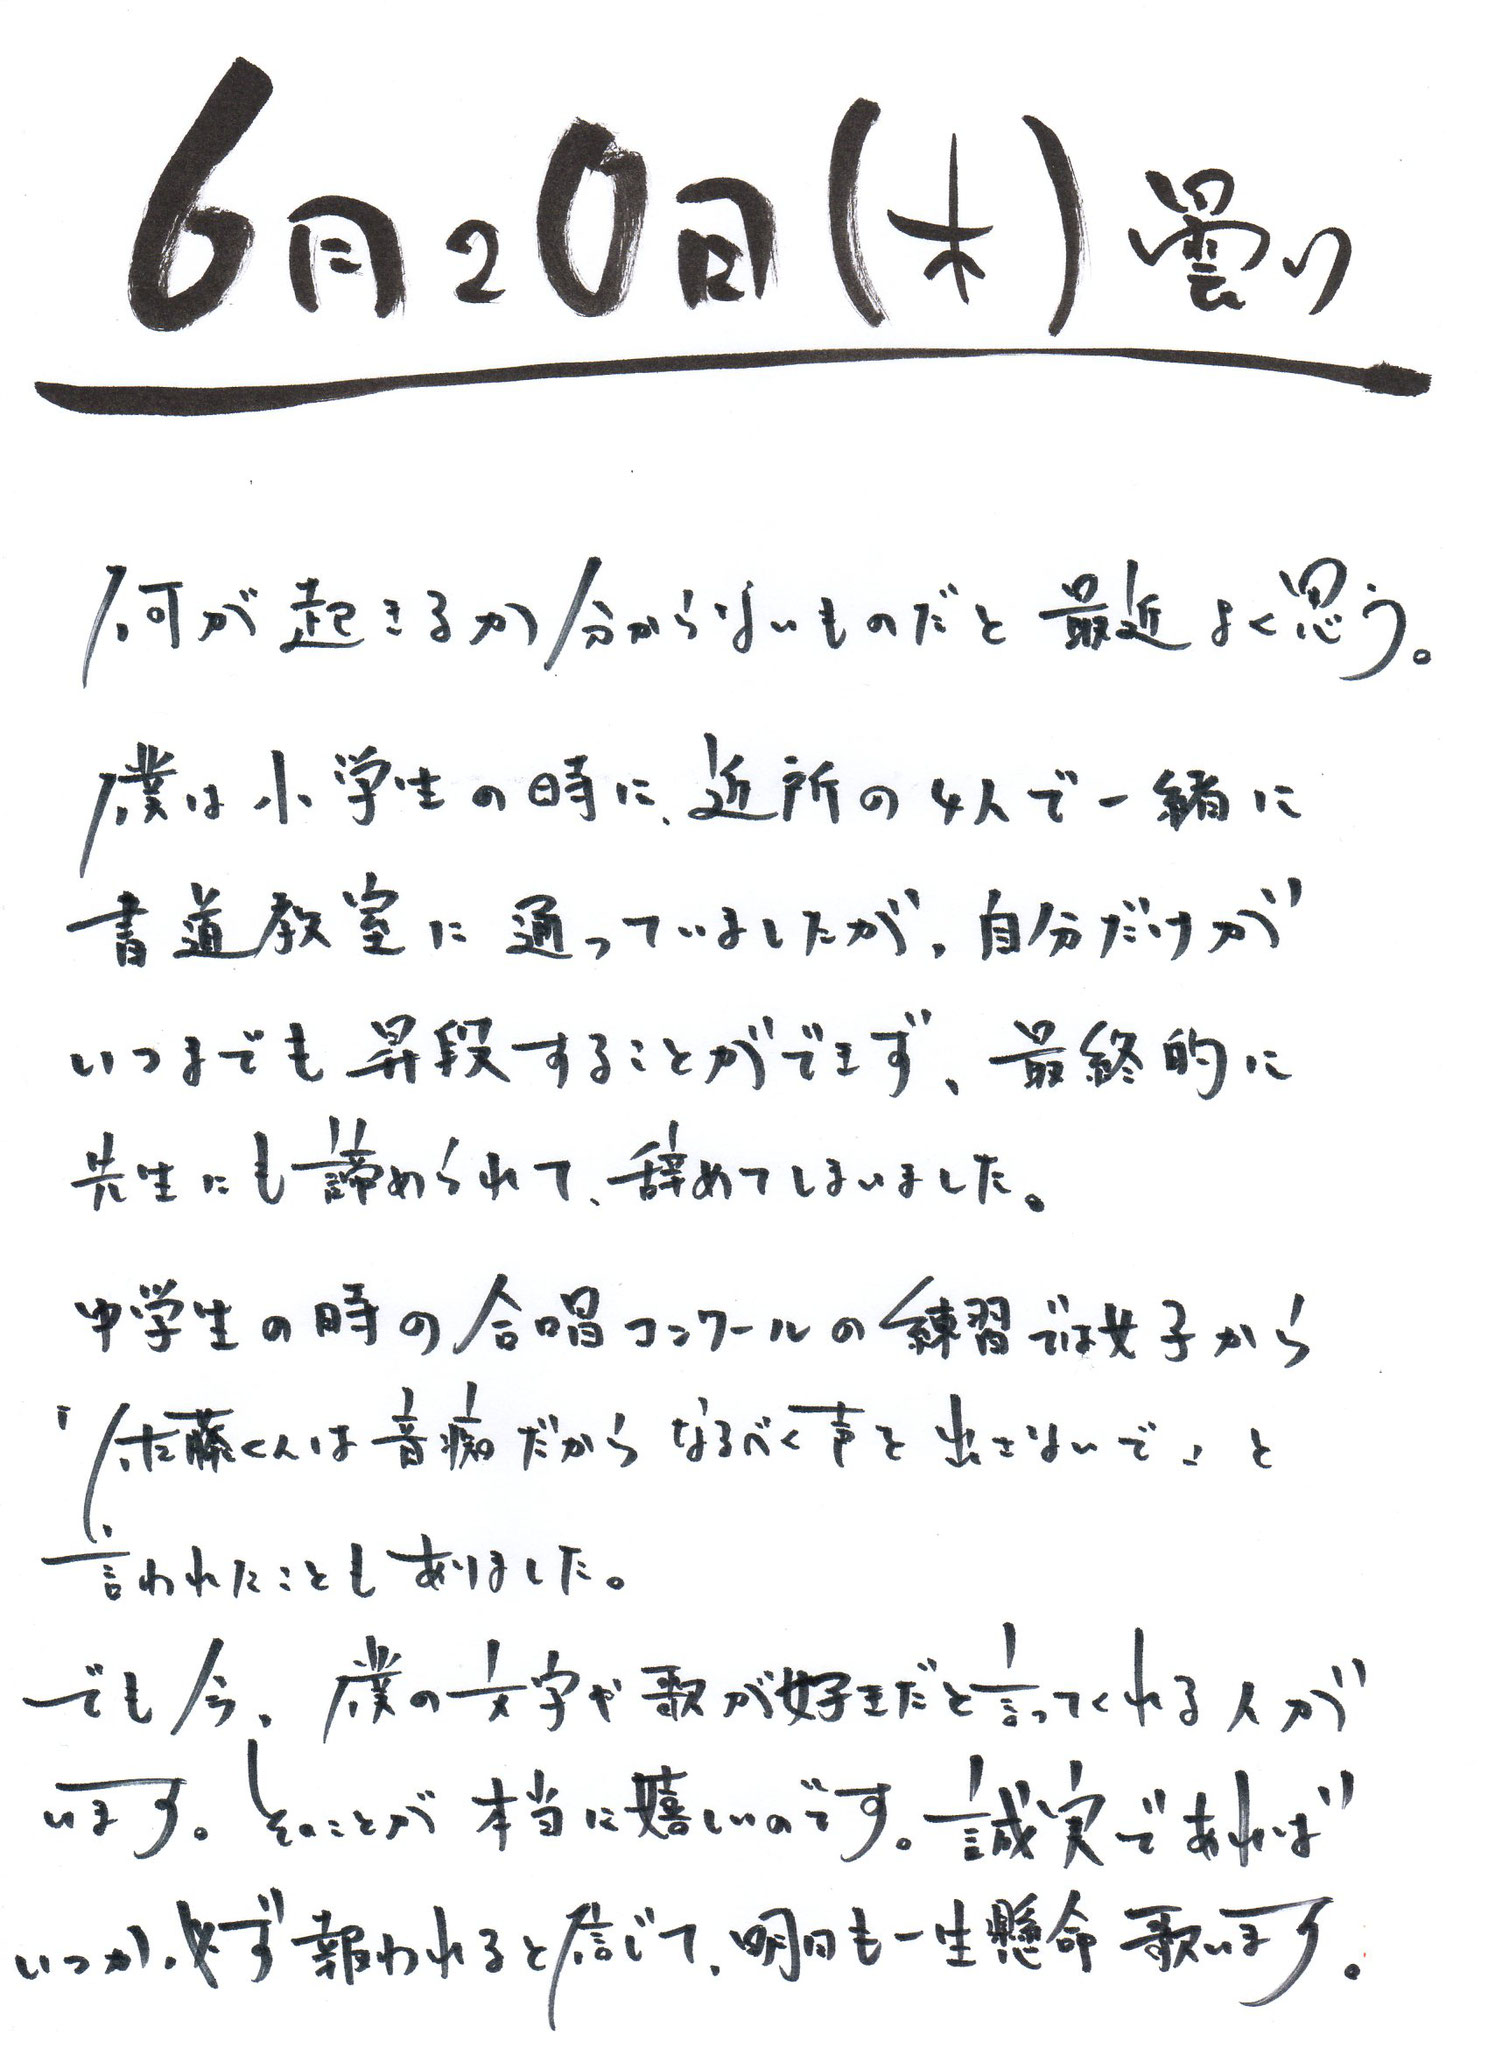 6月20日(木)曇り
何が起きるか分からないものだと最近よく思う。
僕は小学生の時に、近所の4人で一緒に
書道教室に通っていましたが、自分だけが
いつまでも昇段することができず、最終的に
先生にも諦められて、辞めてしまいました。
中学生の時の合唱コンクールの練習では女子から
「佐藤くんは音痴だからなるべく声を出さないで」と
言われたこともありました。
でも今、僕の文字や歌が好きだと言ってくれる人が
います。そのことが本当に嬉しいのです。誠実であれば
いつか必ず報われると信じて、明日も一生懸命歌います。